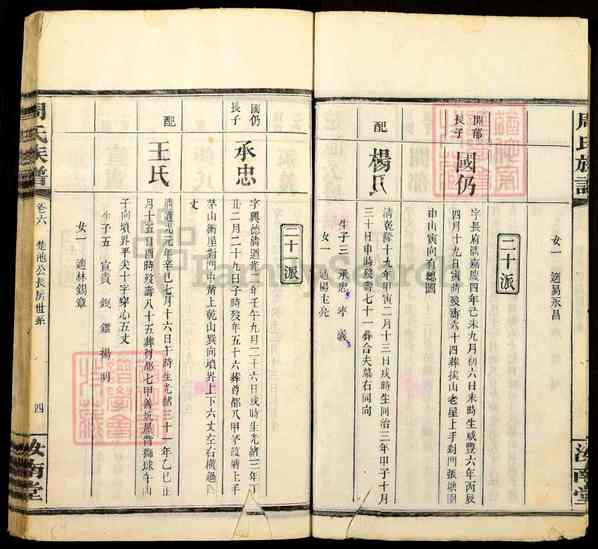 周氏族譜
汝南堂
女一 適易永昌
二十派
開郁
長子
國仍
字長府清嘉慶四年己未九月初六日未時生咸豐六年丙辰
四月十九日寅時歿壽六十四葬
山老屋上手
申山寅向有總圖
配
楊氏
清乾隆十九年甲寅二月十三日戌時生同治三年甲子十月
三十日申時歿壽七十一葬合夫墓右同向
生子三 承忠 孝 義
女一 適楊
二十派
國仍
長子
承忠
字興德清道光二年壬午九月二十六日戌時生光緒三年丁
丑二月二十九日子時歿年五十六葬尊都八甲茅
茅山衝屋對門茶山上乾山巽向墳界上下六丈左右橫過
丈
配
王氏
清道光元年辛巳七月十六日午時生光緒三十一年乙巳正
月十五日酉時歿壽八十五葬尊都七甲
午山
子向墳界平尖十字穿心五丈
生子五 宣貴
楊
女一 適林錫章
周氏族譜
卷六 楚池公長房世系
四
汝南堂
FamilySearch